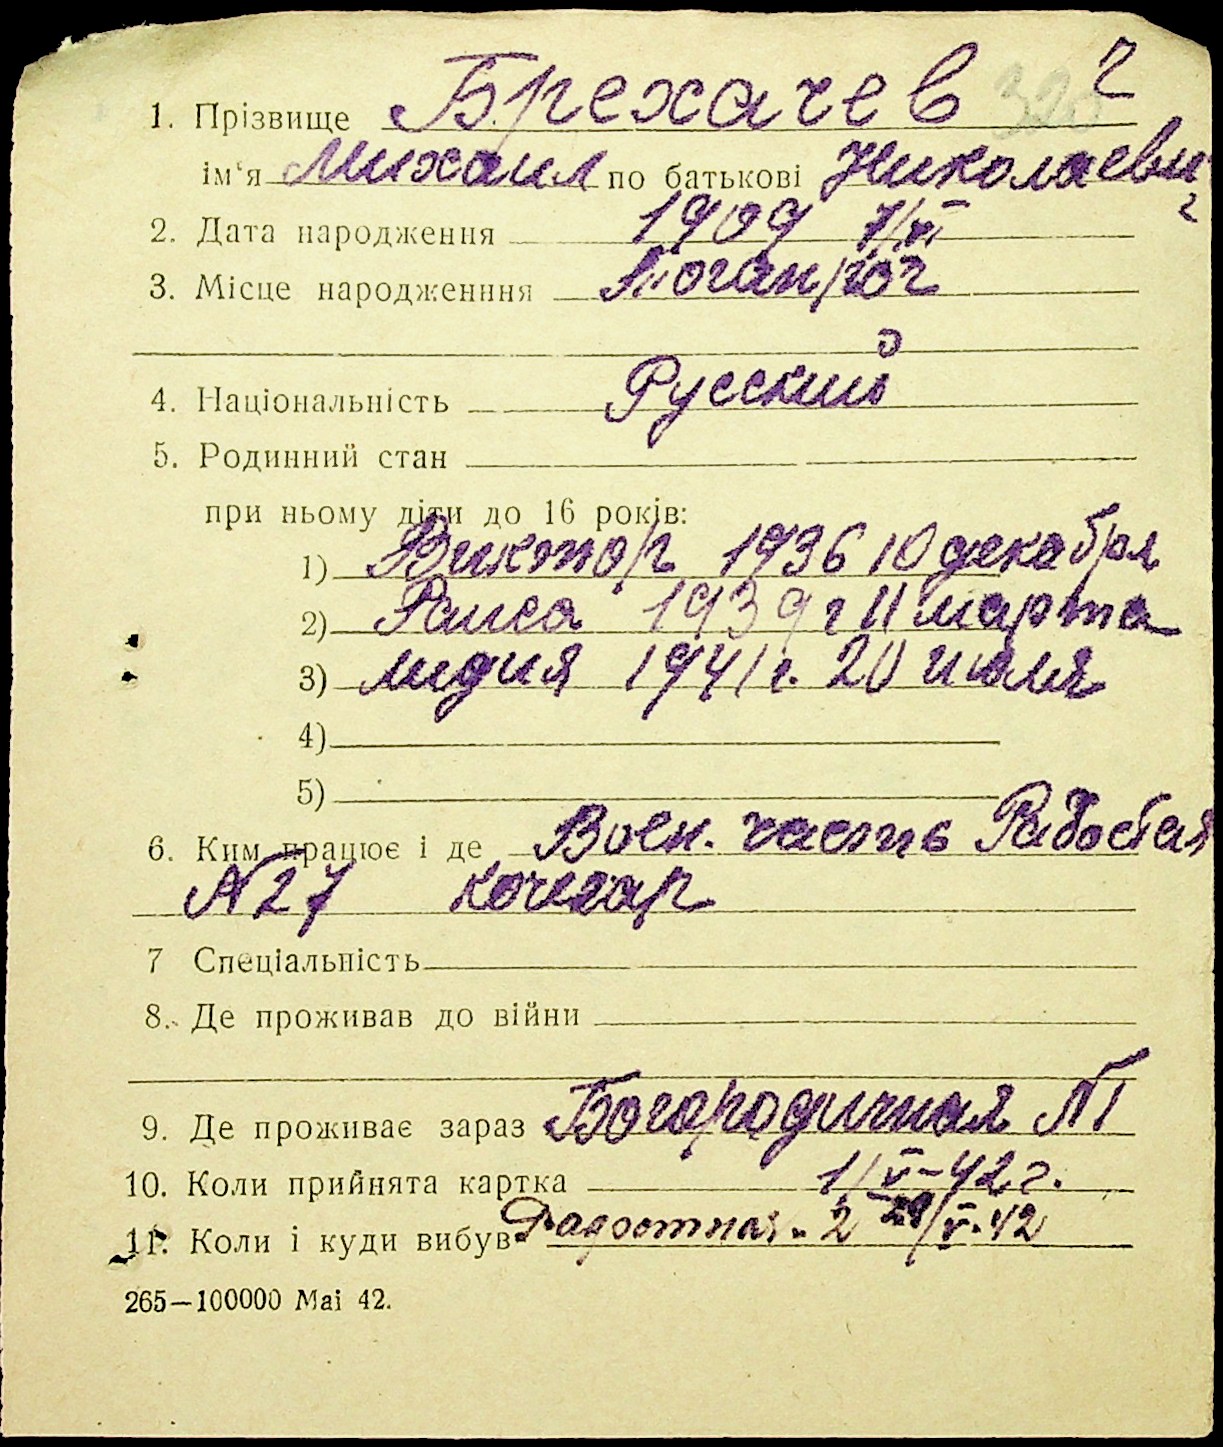 1. Прізвище Брехачев 2
320
ім'я Михаил по батькові Николаеви
ч
2. Дата народження 1909 7/VI
3. Місце народженння
4. Національність Русский
5. Родинний стан
при ньому діти до 16 років:
1) Виктор 1936 10 декабря
2) Раиса 1939 г 11 марта
3) Лидия 1941 г. 20 июля
4)
5)
6. Ким працює і де Воен. часть
N 27 кочегар
7 Спеціальність
8. Де проживав до війни
9. Де проживає зараз Богородичная N1
10. Коли прийнята картка 1/V-42 г.
11. Коли і куди вибув Радостная - 2 29/V-42
265—100000 Mai 42.